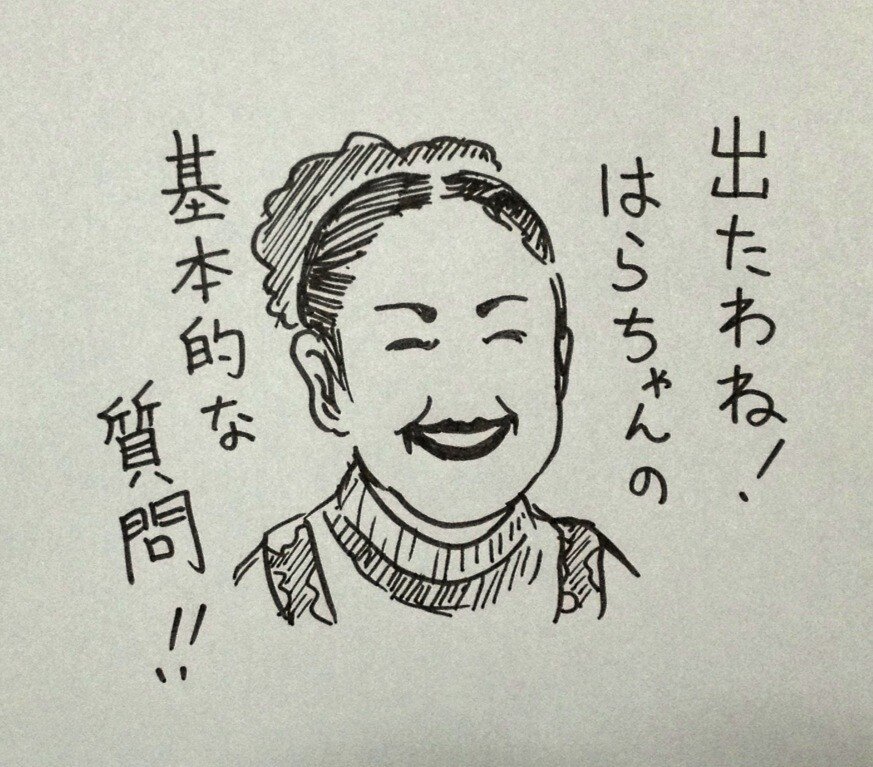 出たわね！
はらちゃんの
基本的な
質問！！